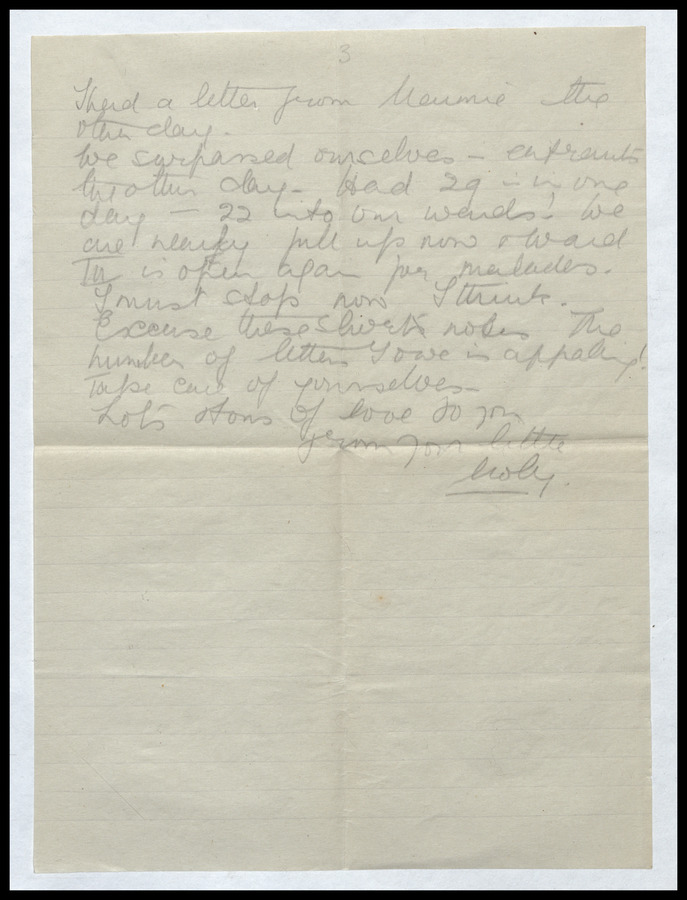 3
I had a letter from Maurnie the
other day.
We surpassed ourselves – entrants
the other day – Had 29 – in one
day – 22 into our wards! We
are nearly full up now & Ward
IV is open again for malades.
I must stop now I think.
Excuse these short notes The
number of letters I owe is appaling!
Take care of yourselves –
Lots & tons of love to you
from your little